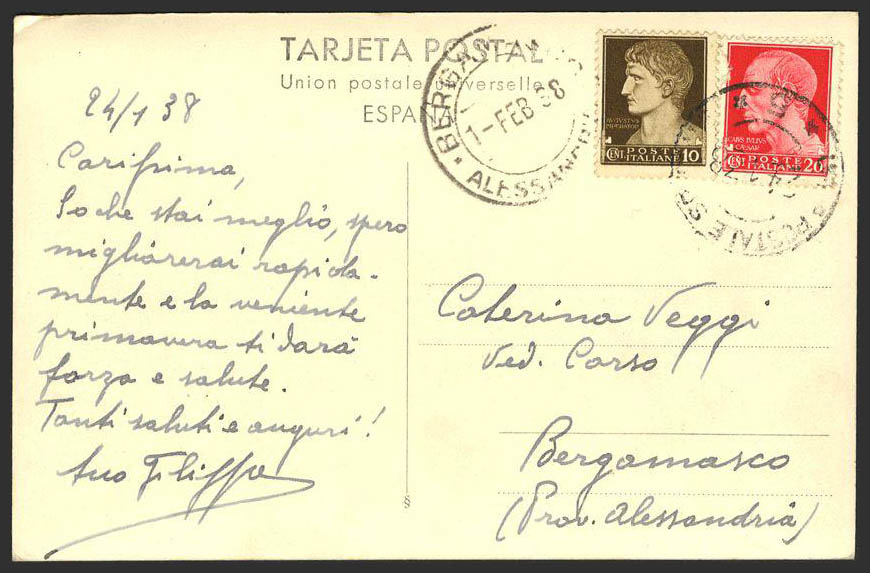 TARJETA POSTAL
Union postale universelle
ESPAÑA
BERGAMASCO
1-FEB 38
ALESSANDRIA
AVGVSTVS
IMPERATOR
CENT. POSTE 10
ITALIANE
CAIVS IVLIVS
CAESAR
CENT. POSTE 20
ITALIANE
POSTALE
24/1 38
Carissima,
So che stai meglio, spero
migliorerai rapida-
mente e la veniente
primavera ti darà
forza e salute.
Tanti saluti e auguri!
tuo Filippo
Caterina Veggi
Ved. Corso
Bergamasco
(Prov. Alessandria)